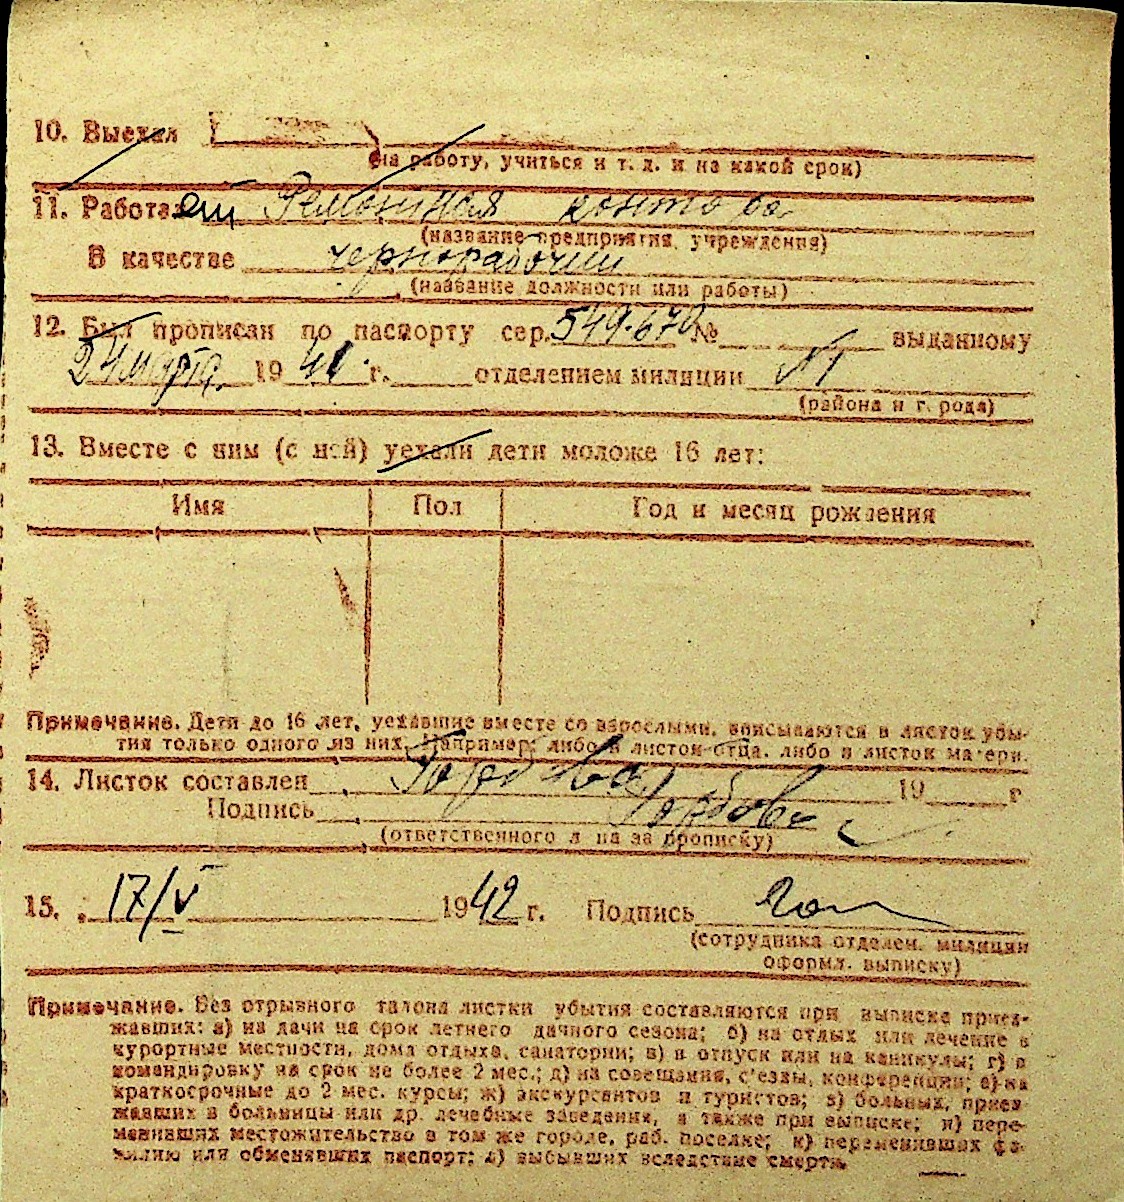 10. Выехал
(на работу, учиться и т. д. и на какой срок)
11. Работает Ремонтная контора
(название предприятия, учреждения)
В качестве чернорабочий
(название должности или работы)
12. Был прописан по паспорту сер. 549.670 № выданному
24 марта 1941 г. отделением милиции №1
(района и г. рода)
13. Вместе с ним (с ней) уехали дети моложе 16 лет:
Имя Пол Год и месяц рождения
Примечание. Дети до 16 лет, уехавшие вместе со взрослыми, вписываются в листок убы-
тия только одного из них. Например: либо в листок отца, либо в листок матери.
14. Листок составлен Горбова 19 г
Подпись Горбова
(ответственного л на за прописку)
15. 17/V 1942 г. Подпись
(сотрудника отделен. милиции
оформл. выписку)
Примечание. Без отрывного талона листки убытия составляются при выписке приез-
жавших: а) на дачи на срок летнего дачного сезона; б) на отдых или лечение в
курортные местности, дома отдыха, санатории; в) в отпуск или на каникулы; г) в
командировку на срок не более 2 мес.; д) на совещания, с'езды, конференции; е) на
краткосрочные до 2 мес. курсы; ж) экскурсантов и туристов; з) больных, приез
жавших в больницы или др. лечебные заведения, а также при выписке; и) пере-
менивших местожительство в том же городе, раб. поселке; к) переменивших фа-
милию или обменявших паспорт; л) выбывших вследствие смерти.